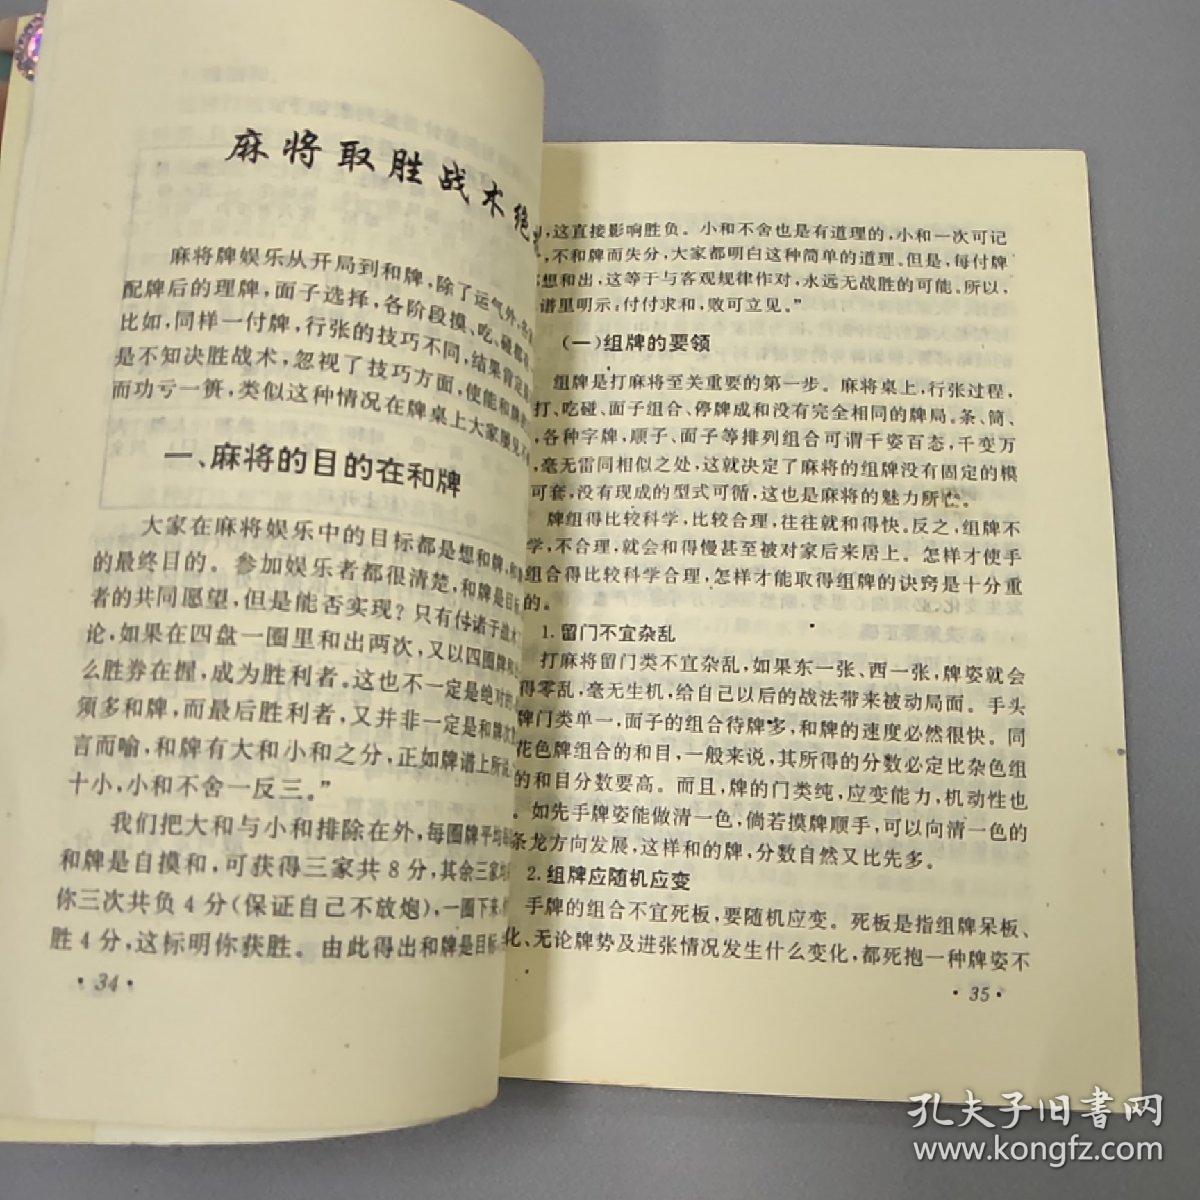 麻将取胜战术绝
麻将牌娱乐从开局到和牌,除了运气外,
配牌后的理牌,面子选择,各阶段摸、吃、碰都
比如,同样一付牌,行张的技巧不同,结果肯定
是不知决胜战术,忽视了技巧方面,使能和牌
而功亏一篑,类似这种情况在牌桌上大家屡见不
一、麻将的目的在和牌
大家在麻将娱乐中的目标都是想和牌,和
的最终目的。参加娱乐者都很清楚,和牌是目
者的共同愿望,但是能否实现?只有付诸于战术
论,如果在四盘一圈里和出两次,又以四圈牌
么胜券在握,成为胜利者。这也不一定是绝对
须多和牌,而最后胜利者,又并非一定是和牌次
言而喻,和牌有大和小和之分,正如牌谱上所说
十小,小和不舍一反三。”
我们把大和与小和排除在外,每圈牌平均
和牌是自摸和,可获得三家共8分,其余三家
你三次共负4分(保证自己不放炮),一圈下来,
胜4分,这标明你获胜。由此得出和牌是目标
·34·
,这直接影响胜负。小和不舍也是有道理的,小和一次可记
,不和牌而失分,大家都明白这种简单的道理。但是,每付牌
想和出,这等于与客观规律作对,永远无战胜的可能。所以,
谱里明示:付付求和,败可立见。”
(一)组牌的要领
组牌是打麻将至关重要的第一步。麻将桌上,行张过程,
打、吃碰、面子组合、停牌成和没有完全相同的牌局。条、筒、
,各种字牌,顺子、面子等排列组合可谓千姿百态,千变万
,毫无雷同相似之处,这就决定了麻将的组牌没有固定的模
可套,没有现成的型式可循,这也是麻将的魅力所在。
牌组得比较科学,比较合理,往往就和得快。反之,组牌不
学,不合理,就会和得慢甚至被对家后来居上。怎样才使手
组合得比较科学合理,怎样才能取得组牌的诀窍是十分重
的。
1.留门不宜杂乱
打麻将留门类不宜杂乱,如果东一张、西一张,牌姿就会
得零乱,毫无生机,给自己以后的战法带来被动局面。手头
牌门类单一,面子的组合待牌多,和牌的速度必然很快。同
花色牌组合的和目,一般来说,其所得的分数必定比杂色组
的和目分数要高。而且,牌的门类纯,应变能力,机动性也
。如先手牌姿能做清一色,倘若摸牌顺手,可以向清一色的
条龙方向发展,这样和的牌,分数自然又比先多。
2.组牌应随机应变
手牌的组合不宜死板,要随机应变。死板是指组牌呆板、
化、无论牌势及进张情况发生什么变化,都死抱一种牌姿不
·35·
孔夫子旧书网
www.kongfz.com